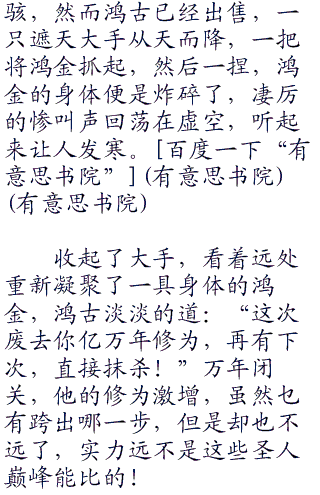 骇，然而鸿古已经出售，一
只遮天大手从天而降，一把
将鸿金抓起，然后一捏，鸿
金的身体便是炸碎了，凄厉
的惨叫声回荡在虚空，听起
来让人发寒。[百度一下“有
意思书院”](有意思书院)
(有意思书院)
收起了大手，看着远处
重新凝聚了一具身体的鸿
金，鸿古淡淡的道：“这次
废去你亿万年修为，再有下
次，直接抹杀！”万年闭
关，他的修为激增，虽然乜
有跨出哪一步，但是却也不
远了，实力远不是这些圣人
巅峰能比的！